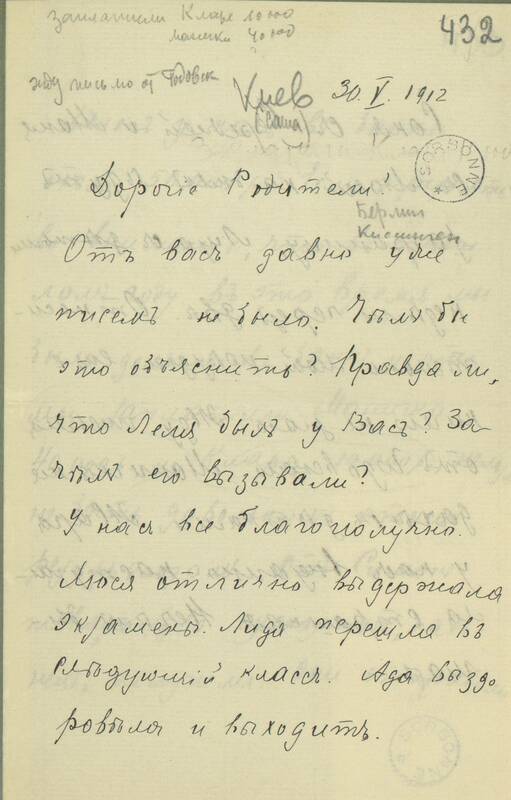 заплатили Кларе 10000
432
жду письмо от Годовск
Киев 30.V.1912
(Саша)
SORBONNE
Дорогіе Родители!
Берлин
Киссинген
Отъ васъ давно уже
писемъ не было. Чѣмъ бы
это объяснить? Правда ли,
что Леля былъ у Васъ? За-
чѣмъ его вызывали?
У насъ все благополучно.
Люся отлично выдержала
экзамены. Лида перешла въ
слѣдующій классъ. Ада выздо
ровѣла и выходитъ.
SORBONNE